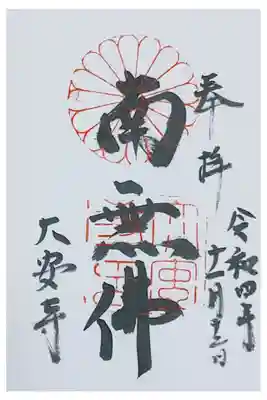 奉拝
令和四年
十一月 日
南無佛
大安寺